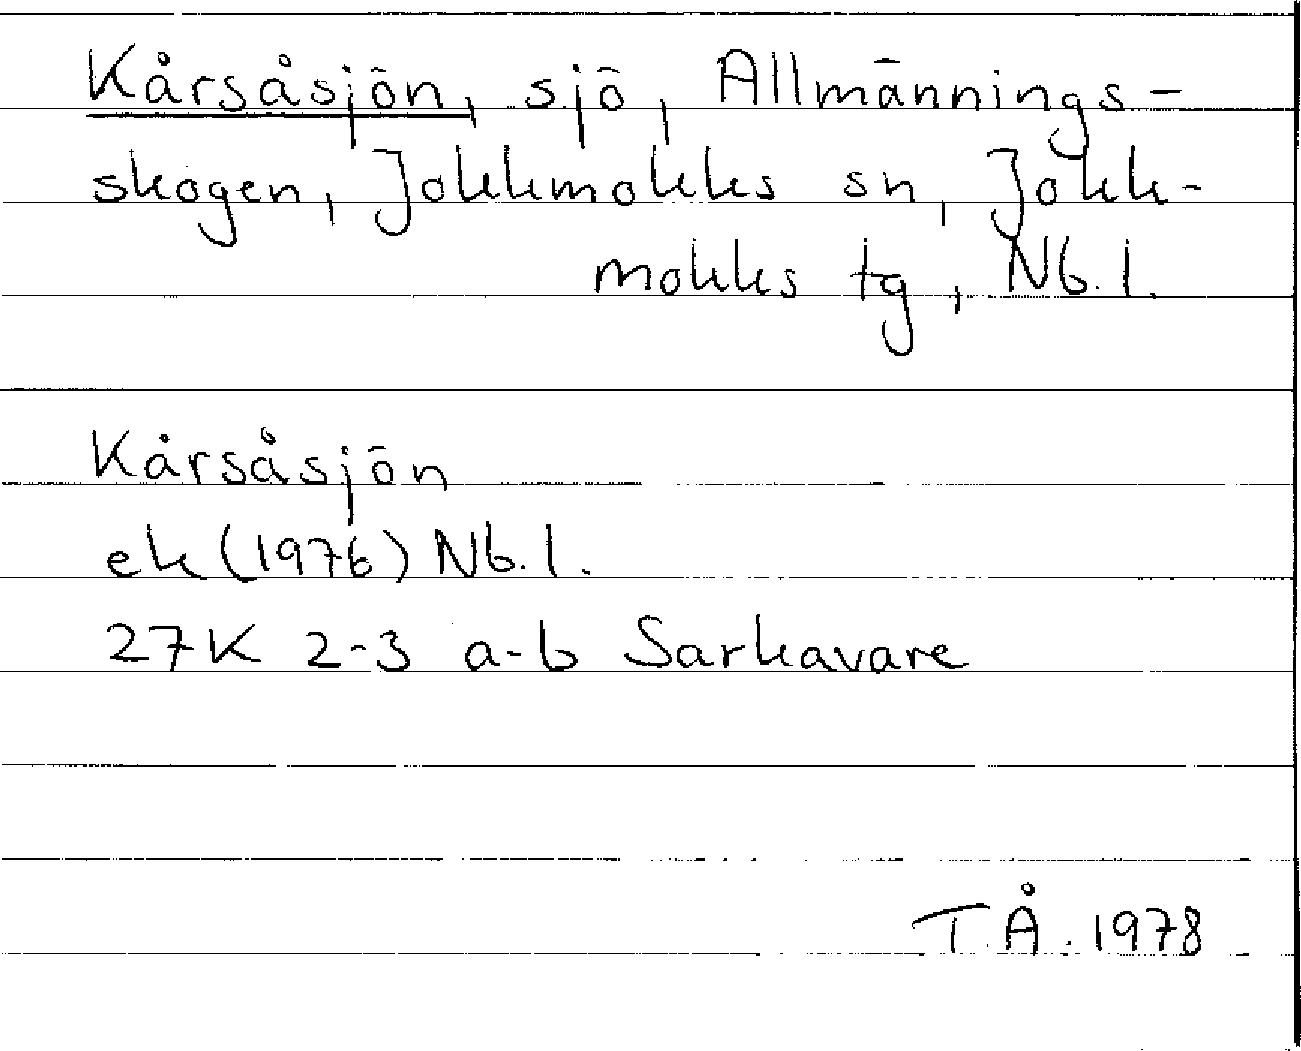 Kårsåsjön, sjö, Allmännings-
skogen, Jokkmokks sn, Jokk-
mokks tg, Nb.l.
Kårsåsjön
ek (1976) Nb.l.
27K 2-3 a-b Sarkavare
T.Å. 1978